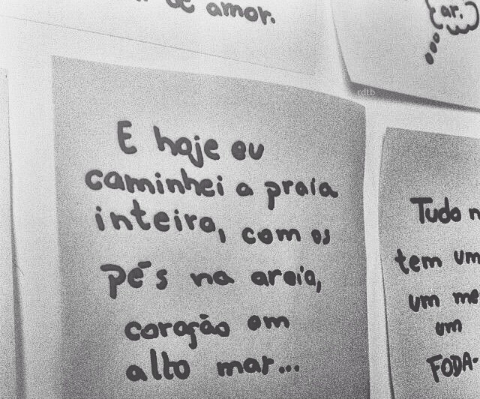 de amor.
ar.
rdtb
E hoje eu
caminhei a praia
inteira, com os
pés na areia,
coração em
alto mar...
Tudo
tem um
um
um
FODA-